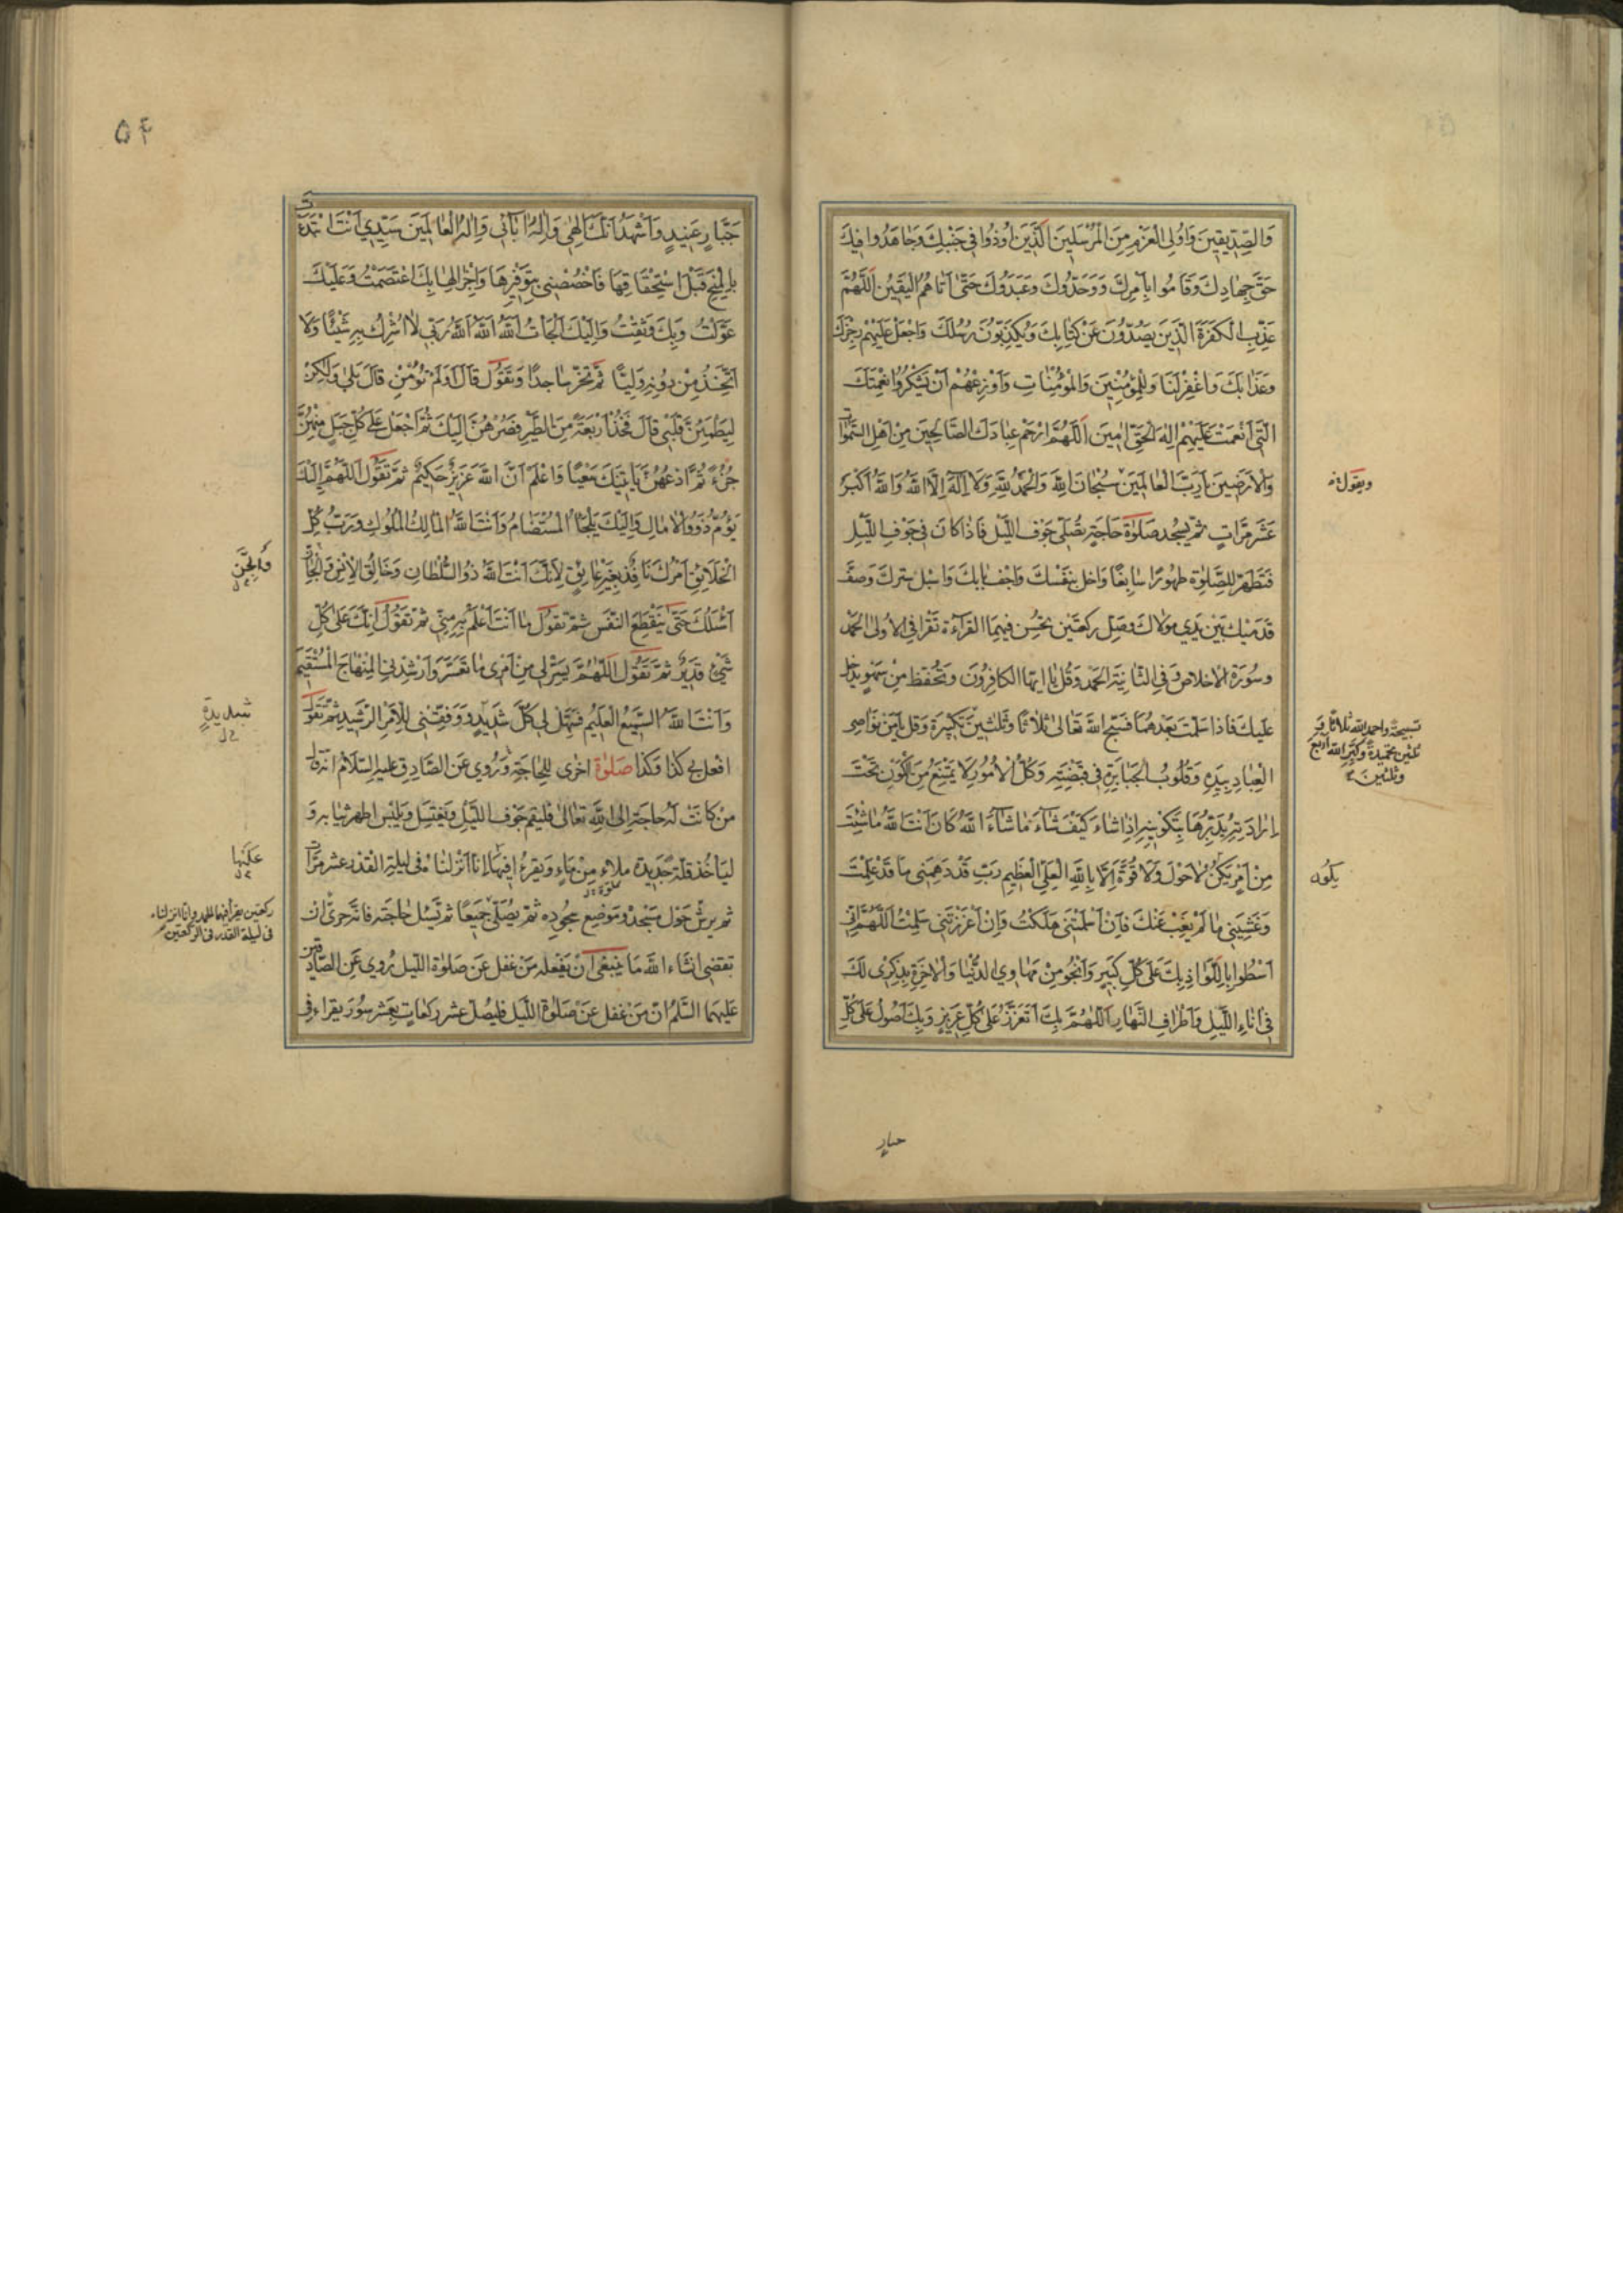 وَالصِّدِّيقِينَ وَاُولِى الْعَزْمِ مِنَ الْمُرْسَلِينَ الَّذِينَ اُوذُوا فِى جَنْبِكَ وَجَاهَدُوا فِيكَ
حَقَّ جِهَادِكَ وَقَامُوا بِاَمْرِكَ وَوَحَّدُوكَ وَعَبَدُوكَ حَتّٰى اَتَاهُمُ الْيَقِينُ اَللّٰهُمَّ
عَذِّبِ الْكَفَرَةَ الَّذِينَ يَصُدُّونَ عَنْ كِتَابِكَ وَيُكَذِّبُونَ رُسُلَكَ وَاجْعَلْ عَلَيْهِمْ رِجْزَكَ
وَعَذَابَكَ وَاغْفِرْ لَنَا وَلِلْمُؤْمِنِينَ وَالْمُؤْمِنَاتِ وَاَوْزِعْهُمْ اَنْ يَشْكُرُوا نِعْمَتَكَ
الَّتِى اَنْعَمْتَ عَلَيْهِمْ اِلٰهَ الْحَقِّ اٰمِينَ اَللّٰهُمَّ ارْحَمْ عِبَادَكَ الصَّالِحِينَ مِنْ اَهْلِ السَّمٰوَاتِ
وَالْاَرَضِينَ يَا رَبَّ الْعَالَمِينَ سُبْحَانَ اللهِ وَالْحَمْدُ لِلهِ وَلَا اِلٰهَ اِلَّا اللهُ وَاللهُ اَكْبَرُ
ويقول
عَشْرَ مَرَّاتٍ ثُمَّ يسجد صَلٰوةُ حَاجَةٍ تُصَلّٰى جَوْفَ اللَّيْلِ فَاِذَا كَانَ فِى جَوْفِ اللَّيْلِ
فَتَطَهَّرْ لِلصَّلٰوةِ طَهُورًا سَابِغًا وَاخْلُ بِنَفْسِكَ وَاَجِفْ بَابَكَ وَاَسْبِلْ سِتْرَكَ وَصُفَّ
قَدَمَيْكَ بَيْنَ يَدَىْ مَوْلَاكَ وَصَلِّ رَكْعَتَيْنِ تُحْسِنُ فِيهِمَا الْقَرَاءَةَ تَقْرَأُ فِى الْاُولَى الْحَمْدَ
وَسُورَةَ الْاِخْلَاصِ وَفِى الثَّانِيَةِ الْحَمْدَ وَقُلْ يَا اَيُّهَا الْكَافِرُونَ وَتَحَفَّظْ مِنْ سَهْوٍ يدخل
عَلَيْكَ فَاِذَا سَلَّمْتَ بَعْدَهُمَا فَسَبِّحِ اللهَ تَعَالٰى ثَلَاثًا وَثَلٰثِينَ تَكْبِيرَةً وَقُلْ يَا مَنْ نَوَاصِى
تسبيحة واحمد الله ثلاثا و
ثلثين تحميدة وكبر الله اربع
وثلثين
الْعِبَادِ بِيَدِهِ وَقُلُوبُ الْجَبَابِرَةِ فِى قَبْضَتِهِ وَكُلُّ الْاُمُورِ لَا يَمْتَنِعُ مِنَ الْكَوْنِ تَحْتَ
اِرَادَتِهِ يُدَبِّرُهَا بِتَكْوِينِهِ اِذَا شَاءَ كَيْفَ شَاءَ مَا شَاءَ اللهُ كَانَ اَنْتَ اللهُ مَا شِئْتَ
مِنْ اَمْرٍ يَكُنْ لَا حَوْلَ وَلَا قُوَّةَ اِلَّا بِاللهِ الْعَلِىِّ الْعَظِيمِ رَبِّ قَدْ دَهِمَنِى مَا قَدْ عَلِمْتَ
يكون
وَغَشِيَنِى مَا لَمْ يَغِبْ عَنْكَ فَاِنْ اَسْلَمْتَنِى هَلَكْتُ وَاِنْ اَعْزَزْتَنِى سَلِمْتُ اَللّٰهُمَّ اِنِّى
اَسْطُوا بِاللَّوَاذِ بِكَ عَلٰى كُلِّ كَبِيرٍ وَاَنْجُو مِنْ مَهَاوِى الدُّنْيَا وَالْاٰخِرَةِ بِذِكْرِى لَكَ
فِى اٰنَاءِ اللَّيْلِ وَاَطْرَافِ النَّهَارِ اَللّٰهُمَّ بِكَ اَتَعَزَّزُ عَلٰى كُلِّ عَزِيزٍ وَبِكَ اَصُولُ عَلٰى كُلِّ
جبار
۵۴
جَبَّارٍ عَنِيدٍ وَاَشْهَدُ اَنَّكَ اِلٰهِى وَاِلٰهُ اٰبَائِى وَاِلٰهُ الْعَالَمِينَ سَيِّدِى اَنْتَ ابْتَدَأْتَ
بِالْمِنَحِ قَبْلَ اسْتِحْقَاقِهَا فَاخْصُصْنِى بِتَوْفِيرِهَا وَاِجْزَالِهَا بِكَ اعْتَصَمْتُ وَعَلَيْكَ
عَوَّلْتُ وَبِكَ وَثِقْتُ وَاِلَيْكَ لَجَأْتُ اَللهُ اَللهُ اَللهُ رَبِّى لَا اُشْرِكُ بِهِ شَيْئًا وَلَا
اَتَّخِذُ مِنْ دُونِهِ وَلِيًّا ثُمَّ تَخِرُّ سَاجِدًا وَتَقُولُ قَالَ اَوَلَمْ تُؤْمِنْ قَالَ بَلٰى وَلٰكِنْ
لِيَطْمَئِنَّ قَلْبِى قَالَ فَخُذْ اَرْبَعَةً مِنَ الطَّيْرِ فَصُرْهُنَّ اِلَيْكَ ثُمَّ اجْعَلْ عَلٰى كُلِّ جَبَلٍ مِنْهُنَّ
جُزْءً ثُمَّ ادْعُهُنَّ يَأْتِينَكَ سَعْيًا وَاعْلَمْ اَنَّ اللهَ عَزِيزٌ حَكِيمٌ ثُمَّ تَقُولُ اَللّٰهُمَّ اِلَيْكَ
يَؤُمُّ ذَوُو الْاٰمَالِ وَاِلَيْكَ يَلْجَأُ الْمُسْتَضَامُ وَاَنْتَ اللهُ الْمَالِكُ الْمُلُوكِ وَرَبُّ كُلِّ
الْخَلَائِقِ اَمْرُكَ نَافِذٌ بِغَيْرِ عَائِقٍ لِاَنَّكَ اَنْتَ اللهُ ذُو السُّلْطَانِ وَخَالِقُ الْاِنْسِ وَالْجَانِّ
والجن
اَسْئَلُكَ حَتّٰى يَنْقَطِعَ النَّفَسُ ثُمَّ تَقُولُ مَا اَنْتَ اَعْلَمُ بِهِ مِنِّى ثُمَّ تَقُولُ اِنَّكَ عَلٰى كُلِّ
شَىْءٍ قَدِيرٌ ثُمَّ تَقُولُ اَللّٰهُمَّ يَسِّرْ لِى مِنْ اَمْرِى مَا تَعَسَّرَ وَاَرْشِدْنِى الْمِنْهَاجَ الْمُسْتَقِيمَ
وَاَنْتَ اللهُ السَّمِيعُ الْعَلِيمُ فَسَهِّلْ لِى كُلَّ شَدِيدٍ وَوَفِّقْنِى لِلْاَمْرِ الرَّشِيدِ ثُمَّ تَقُولُ
شديدة
افْعَلْ بِى كَذَا وَكَذَا صَلٰوةٌ اُخْرٰى لِلْحَاجَةِ وَرُوِىَ عَنِ الصَّادِقِ عليه السَّلَامُ انه قال
مَنْ كَانَتْ لَهُ حَاجَةٌ اِلَى اللهِ تَعَالٰى فَلْيَقُمْ جَوْفَ اللَّيْلِ وَيَغْتَسِلْ وَيَلْبَسْ اَطْهَرَ ثِيَابِهِ وَ
لْيَأْخُذْ قُلَّةً جَدِيدَةً مَلْاٰى مِنْ مَاءٍ وَيَقْرَءُ فِيهَا اِنَّا اَنْزَلْنَاهُ فِى لَيْلَةِ الْقَدْرِ عَشْرَ مَرَّاتٍ
عليها
ثُمَّ يَرُشُّ حَوْلَ مَسْجِدِهِ وَمَوْضِعِ سُجُودِهِ ثُمَّ يُصَلِّى جَمِيعًا ثُمَّ يَسْئَلُ حَاجَتَهُ فَاِنَّهُ حَرِىٌّ اَنْ
ركعتين يقرأ فيهما الحمد وانا انزلناه
فى ليلة القدر فى الركعتين
تُقْضٰى اِنْشَاءَ اللهُ مَا يَنْبَغِى اَنْ يَفْعَلَهُ مَنْ غَفَلَ عَنْ صَلٰوةِ اللَّيْلِ رُوِىَ عَنِ الصَّادِقَيْنِ
عَلَيْهِمَا السَّلَمُ اَنَّ مَنْ غَفَلَ عَنْ صَلٰوةِ اللَّيْلِ فَلْيُصَلِّ عَشْرَ رَكَعَاتٍ بِعَشْرِ سُوَرٍ يَقْرَاءُ فِى